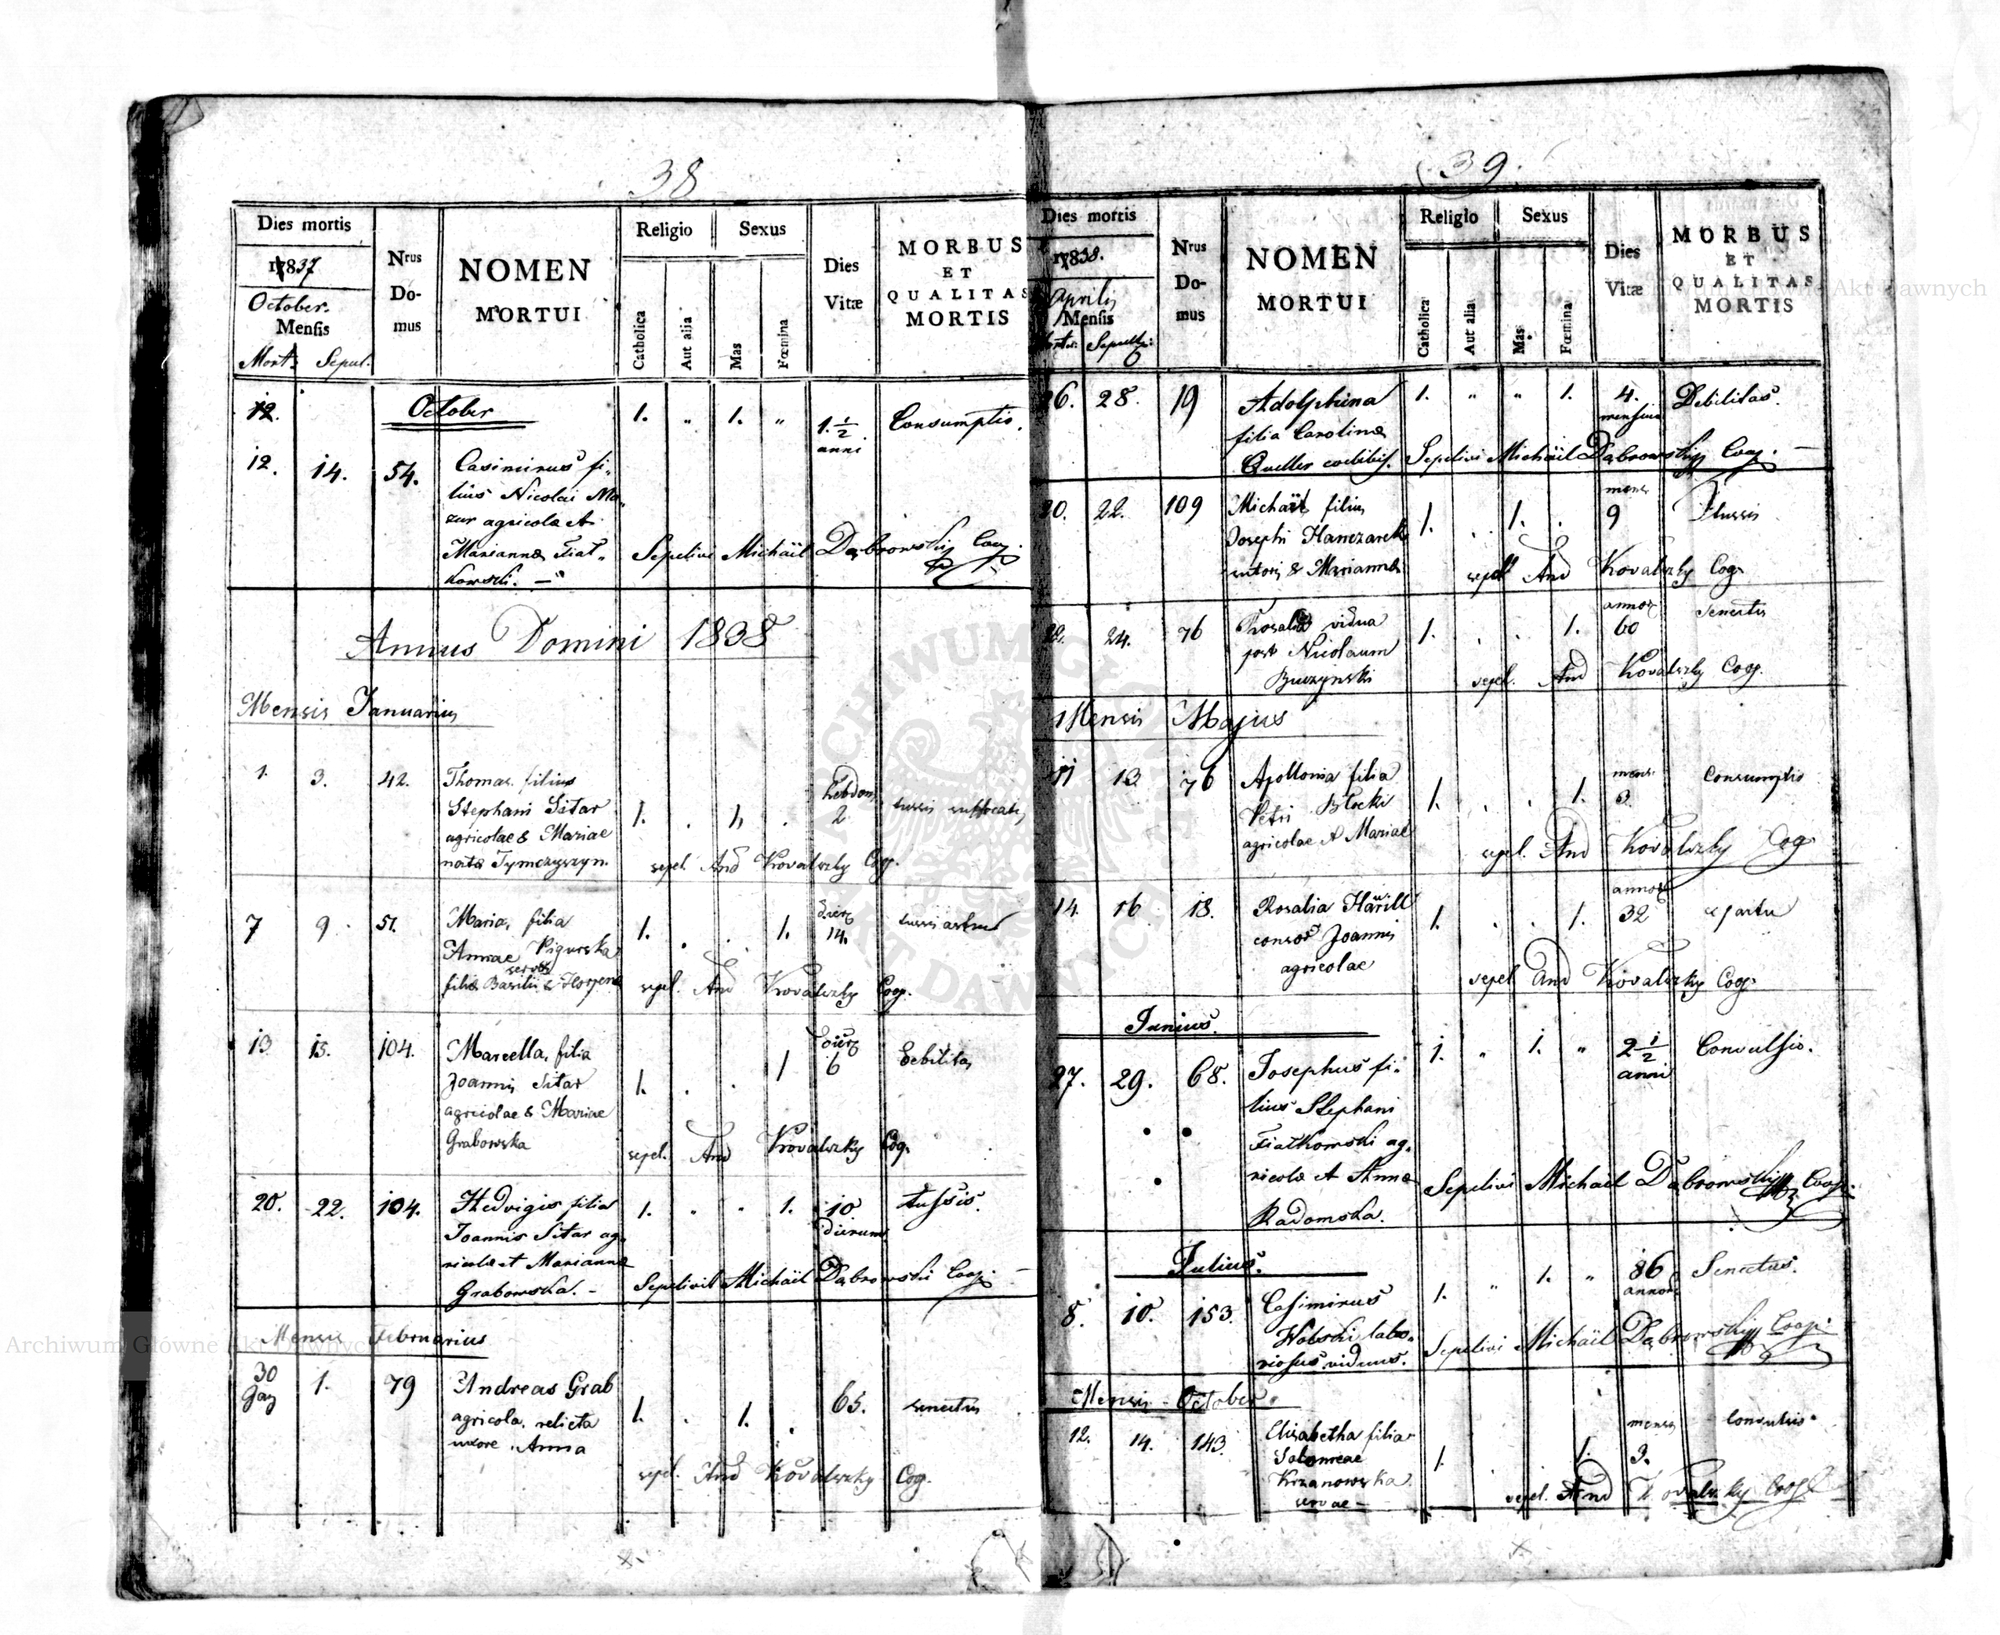 38
Dies mortis
1837
October.
Mensis
Mort: Sepul.
Nrus
Do-
mus
NOMEN
MORTUI
Religio
Catholica
Aut alia
Sexus
Mas
Fœmina
Dies
Vitæ
MORBUS
ET
QUALITAS
MORTIS
12. October 1. „ 1. „ 1. 1/2 anni Consumptio.
12. 14. 54. Casimirus fi-
lius Nicolai Ma-
zur agricolæ et
Mariannæ Fiat-
kowski. —
Sepelivi Michäil Dąbrowski Coop.
Annus Domini 1838
Mensis Januarius
1. 3. 42. Thomas filius
Stephani Sitar
agricolae & Mariae
nata Tymczyszyn.
1. . 1. . hebdom. 2 tussis
sepel. And Kovalszky Coop.
7 9. 51. Maria, filia
Annae Pigurska
servæ
filiæ Basilii &
1. . . 1. dier. 14. tussis
sepel. And Kovalszky Coop.
13 15. 104. Marcella, filia
Joannis Sitar
agricolae & Mariae
Grabowska
1. . . 1 dier. 6 debilitas
sepel. And Kovalszky Coop.
20. 22. 104. Hedvigis filia
Joannis Sitar ag-
ricolæ et Mariannæ
Grabowska. -
1. „ „ 1. 10 dierum tussis.
Sepelivit Michäil Dąbrowski Coop: —
Mensis Februarius
30 1. 79 Andreas Grab
agricola, relicta
uxore Anna
1. . 1. . 65. senectus
sepel. And Kovalszky Coop.
39.
Dies mortis
1838.
Aprilis
Mensis
Sepult:
Nrus
Do-
mus
NOMEN
MORTUI
Religio
Catholica
Aut alia
Sexus
Mas
Fœmina
Dies
Vitæ
MORBUS
ET
QUALITAS
MORTIS
26. 28. 19 Adolphina
filia Carolinæ
Queller
1. „ „ 1. 4. mensium Debilitas.
Sepelivi Michäil Dąbrowski Coop. —
20. 22. 109 Michael filius
Josephi Hanczarek
sutoris & Mariannæ
1. . 1. . mens. 9
sepel And Kovalszky Coop.
22. 24. 76 Rosalia vidua
post Nicolaum
Buczynski
1. . . 1. annor. 60 Senectus
sepel. And Kovalszky Coop.
Mensis Majus
11 13 76 Apollonia filia
Petri Błocki
agricolae et Mariae
1. . . 1. mens. 3. Consumptio
sepel. And Kovalszky Coop
14. 16 18. Rosalia
consors Joannis
agricolae
1. . . 1. annor. 32 e partu
sepel And Kovalszky Coop.
Junius.
27. 29. 68. Josephus fi-
lius Stephani
Fiatkowski ag-
ricolæ et Annæ
Radomska.
1. „ 1. „ 2 1/2 anni Convulsio.
Sepelivi Michael Dąbrowski Coop.
Julius.
8. 10. 153. Casimirus
labo-
riosus viduus.
1. „ 1. „ 86 annor. Senectus.
Sepelivi Michäil Dąbrowski Coop:
Mensis October
12. 14. 143. Elisabetha filia
Salomeae
Krzanowska
servae —
1. . . 1. mens. 3. Convulsio
sepel. And Kovalszky Coop
ARCHIWUM GŁÓWNE AKT DAWNYCH
Archiwum Główne Akt Dawnych
Archiwum Główne Akt Dawnych